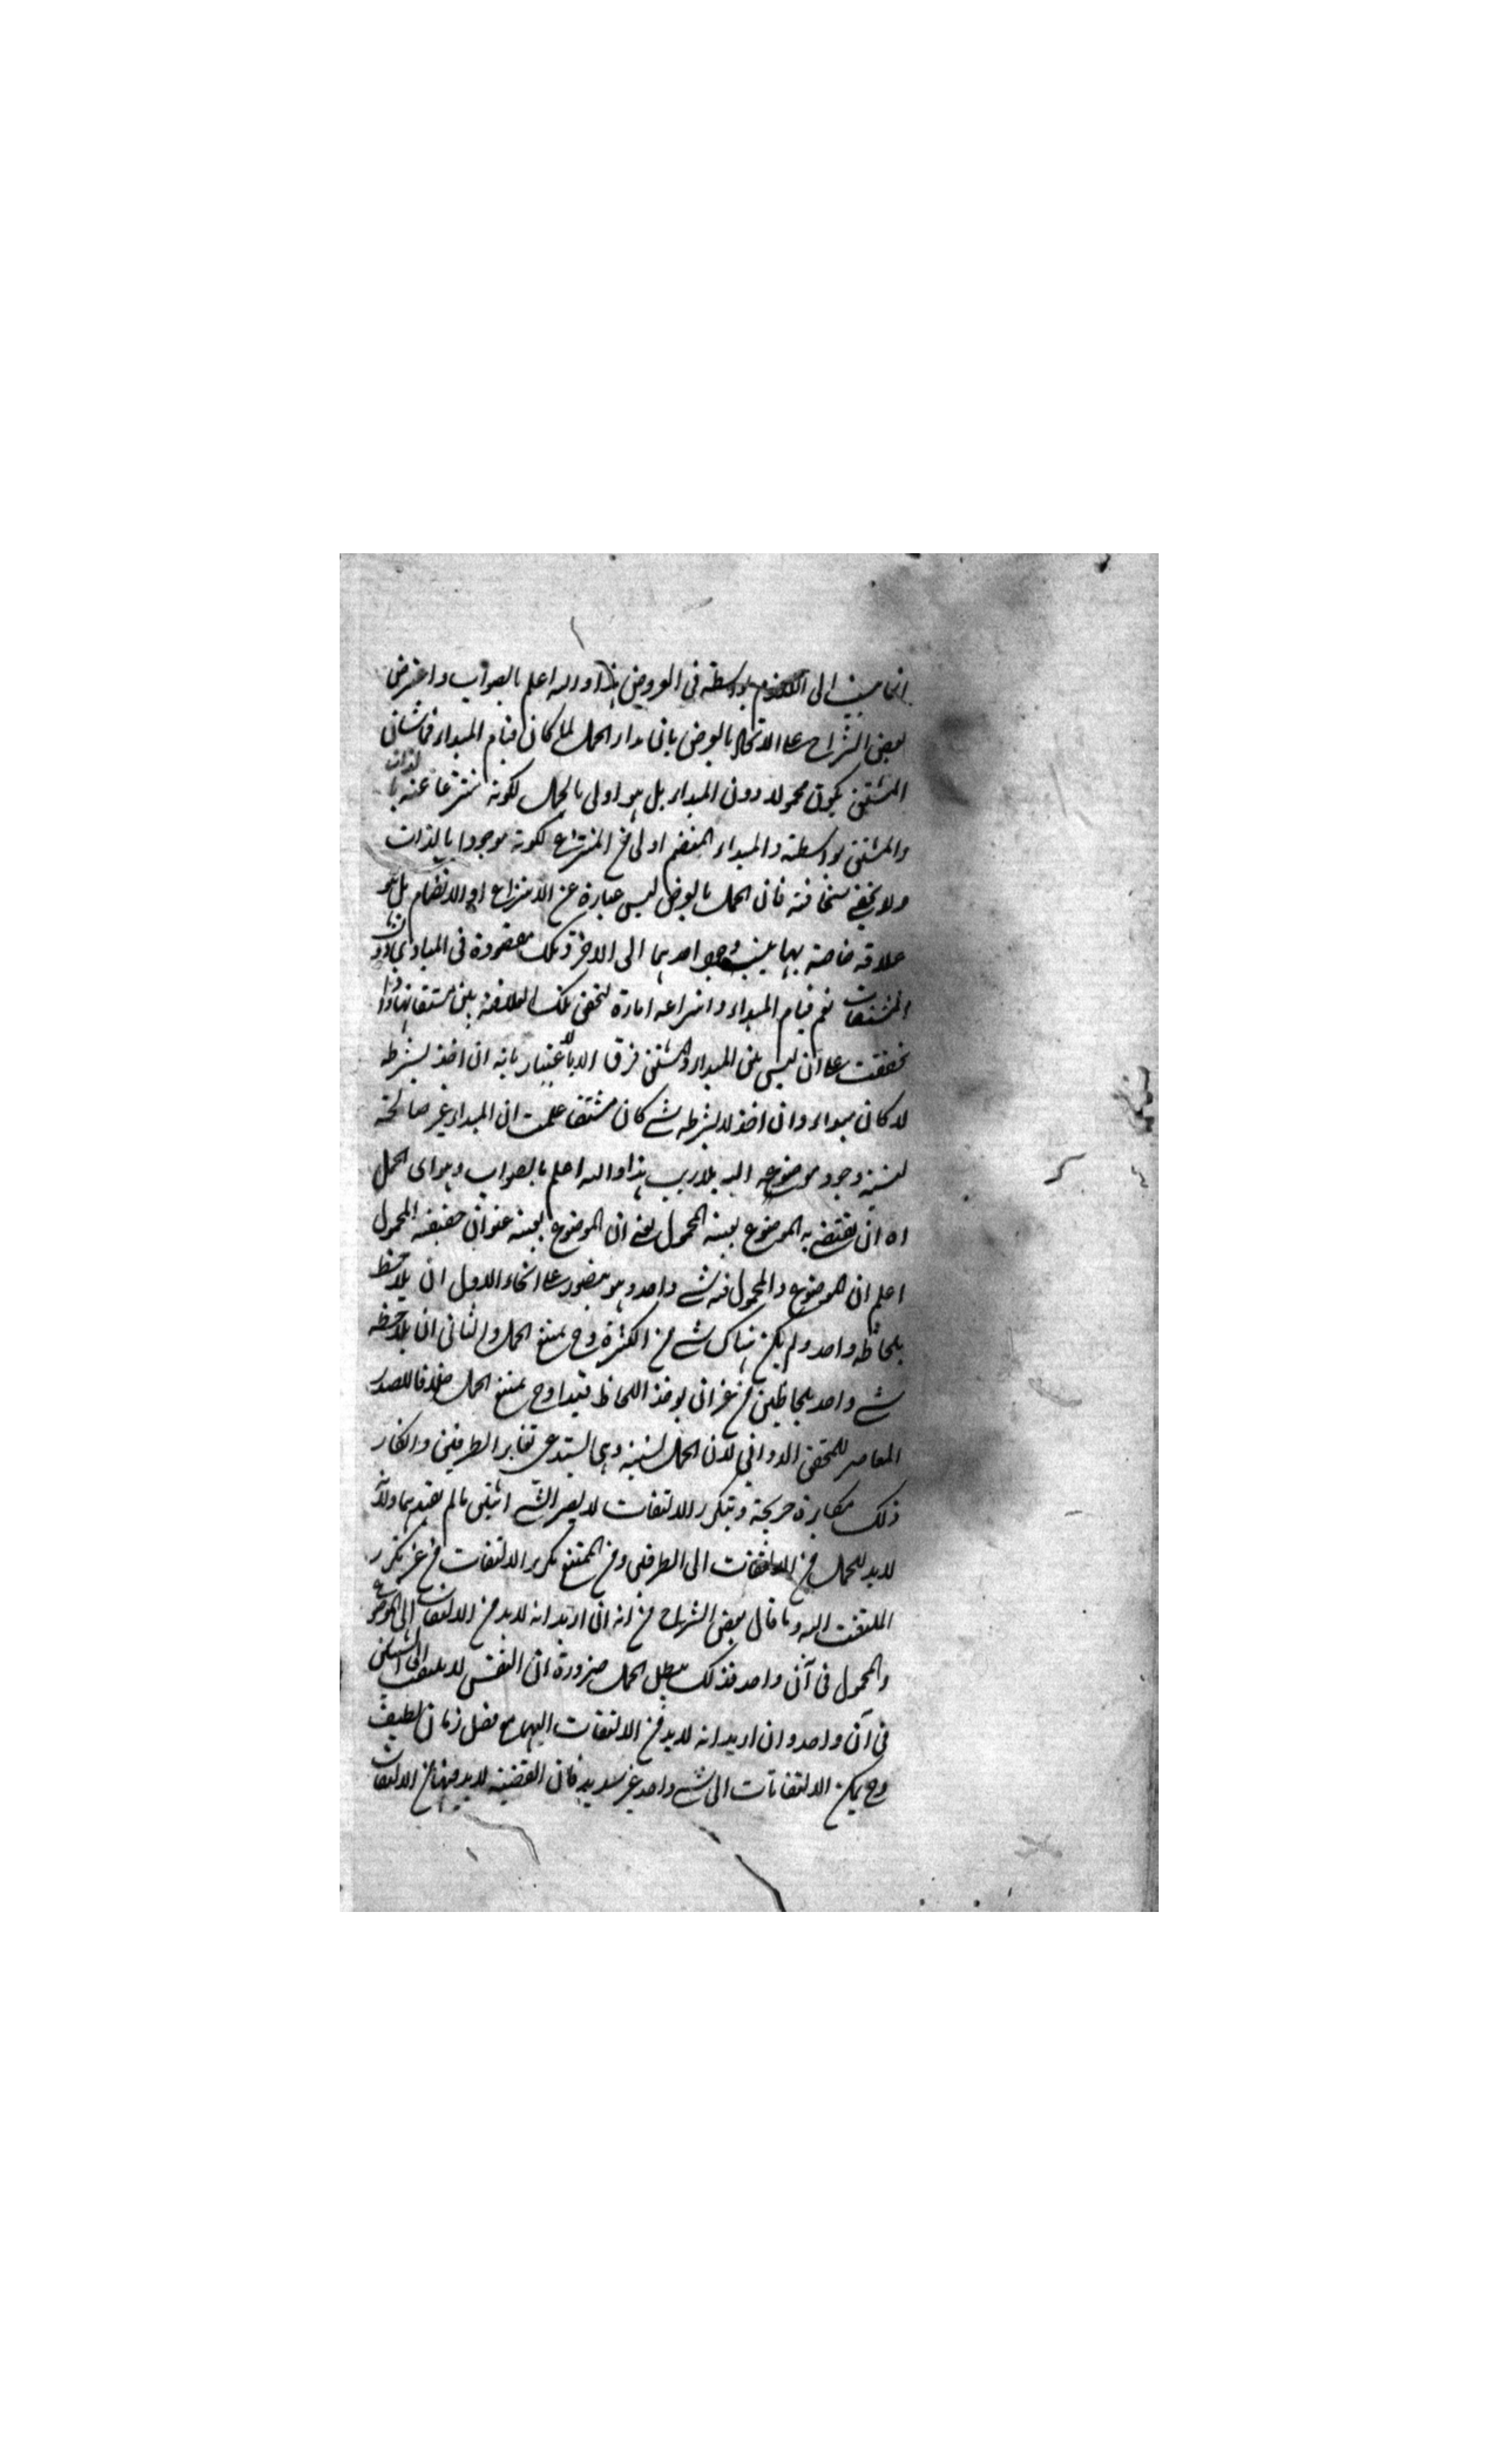 انما ينسب الى اللازم بواسطة فى العروض هذا والله اعلم بالصواب واعترض
بعض الشراح على الاتحاد بالعرض بان مدار الحمل لما كان قيام المبدأ فما شان
المشتق يكون محمولا دون المبدأ بل هو اولى بالحمل لكونه منتزعا عنه بالذات
والمشتق بواسطته والمبداء المنضم اولى من المنتزع لكونه موجودا بالذات
ولا يخفى سخافته فان الحمل بالعرض ليس عبارة عن الانتزاع او الانضمام بل هو
علاقة خاصة بها ينسب وجود احدهما الى الاخر وتلك مفقودة فى المبادى دون
المشتقات نعم قيام المبداء وانتزاعه امارة لتحقق تلك العلاقة بين مشتقاتها واذا
تحققت على ان ليس بين المبداء والمشتق فرق الا بالاعتبار بانه ان اخذ بشرط
لا كان مبداء وان اخذ لا بشرط شے كان مشتقا علمت ان المبداء غير صالحة
لنسبة وجود موضوعه اليه بلا ريب هذا والله اعلم بالصواب وهو اى الحمل
اه ان يقتضى به الموضوع بعينه المحمول يعنى ان الموضوع بعينه عنوان حقيقة المحمول
اعلم ان الموضوع والمحمول فيه شے واحد وهو يتصور على انحاء الاول ان يلاحظ
بلحاظ واحد ولم يكن هناك شے من الكثرة وح يمتنع الحمل والثانى ان يلاحظ
شے واحد بلحاظين من غير ان يوخذ اللحاظ قيدا وح يمتنع الحمل خلافا للصدر
المعاصر للمحقق الدوانى لان الحمل نسبة وهى تستدعى تغاير الطرفين وانكار
ذلك مكابرة صريحة وبتكرر الالتفات لا يصير الشے اثنين ما لم يقيد بهما ولانه
لا بد للحمل من الالتفات الى الطرفين ومن الممتنع تكرير الالتفات من غير تكرر
الملتفت اليه وما قال بعض الشراح من انه ان اريد انه لا بد من الالتفات الى الموضوع
والمحمول فى آن واحد فذلك يبطل الحمل ضرورة ان النفس لا يلتفت الى الشيئين
فى آن واحد وان اريد انه لا بد من الالتفات اليهما مع فصل زمان لطيف
وح يمكن الالتفاتات الى شے واحد غير سديد فان القضية لا بد فيها من الالتفات